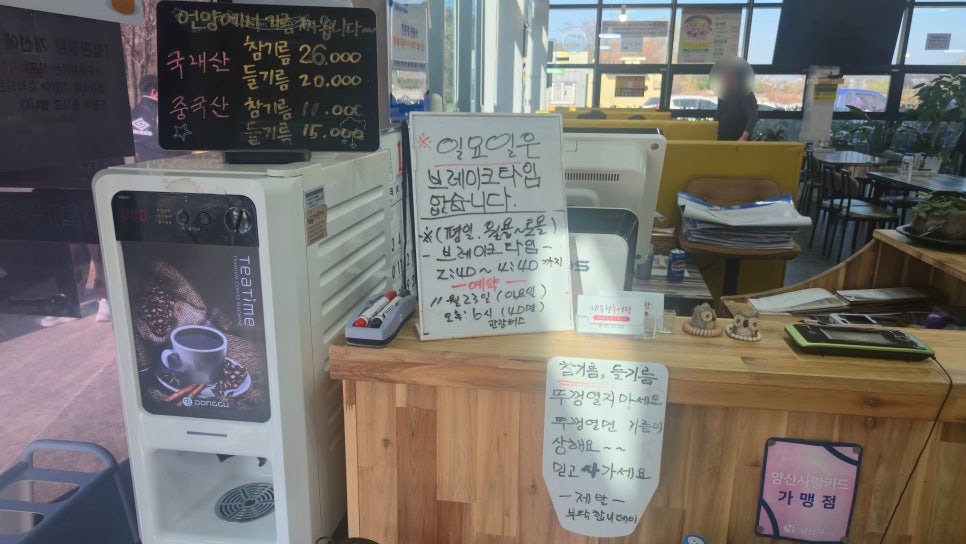 언양에서 기름 짜옵니다
국내산
참기름 26.000
들기름 20.000
중국산
참기름 11.000
들기름 15.000
TEATIME
DONGGU
※ 일요일은
브레이크타임
없습니다.
※(평일.월욜~토욜)
- 브레이크타임 -
2:40 ~ 4:40 까지
- 예약 -
11월 23일 (일요일)
오후: 6시 (40명)
관광버스
참기름, 들기름
뚜껑열지마세요
뚜껑열면 기름이
상해요~~
믿고 사가세요
- 제발 -
부탁합니데이
양산사랑카드
가맹점